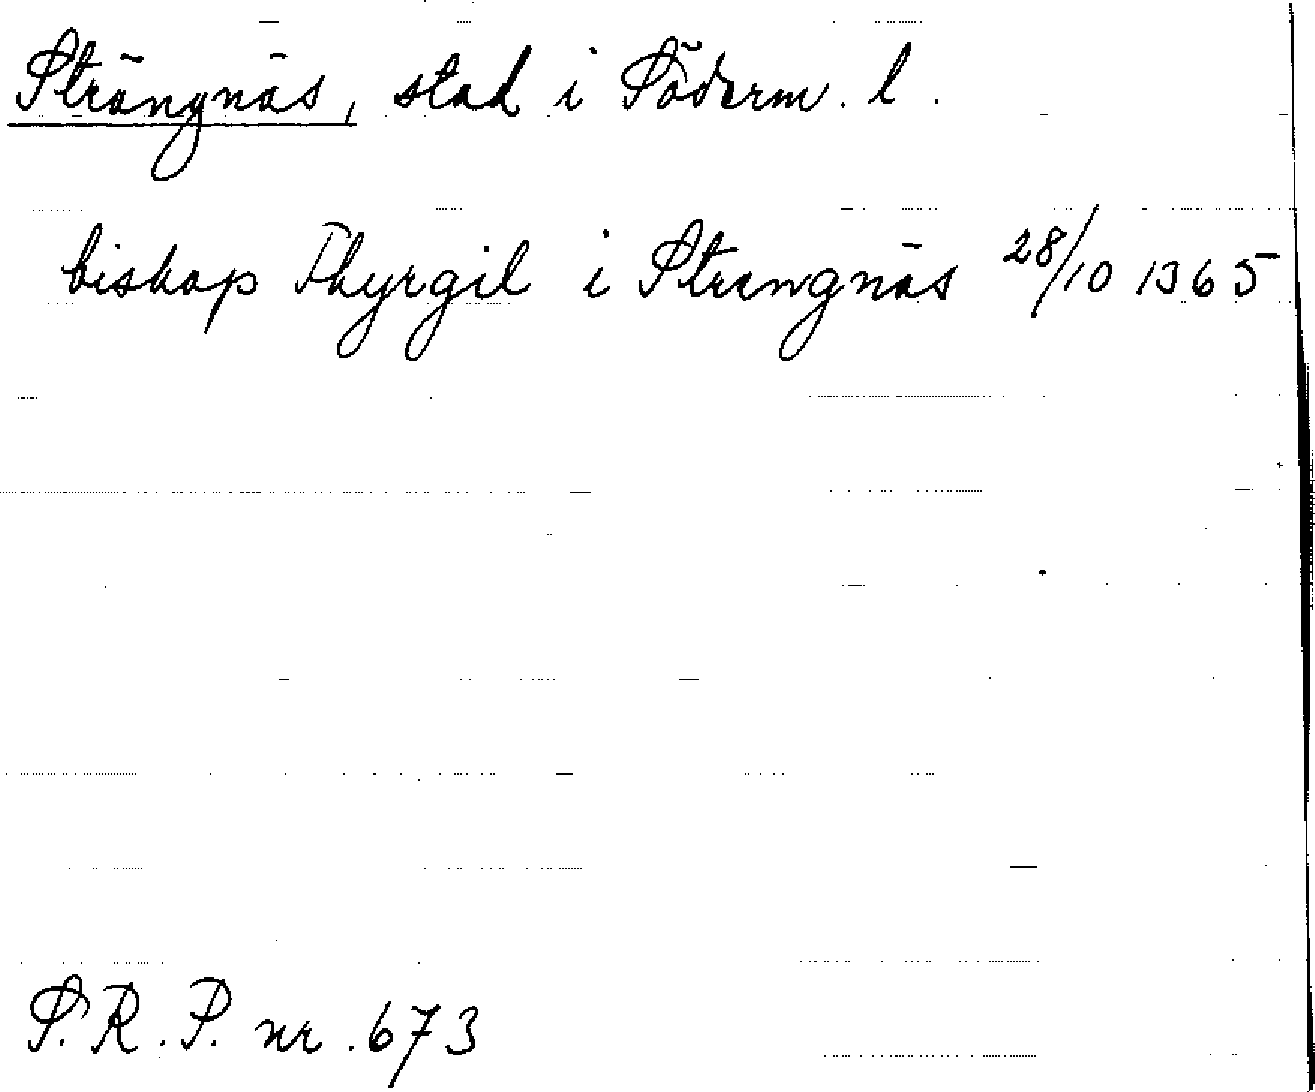 Strängnäs, stad i Söderm. l.
biskop Thyrgil i Strengnäs 28/10 1365
S.R.P. nr. 673